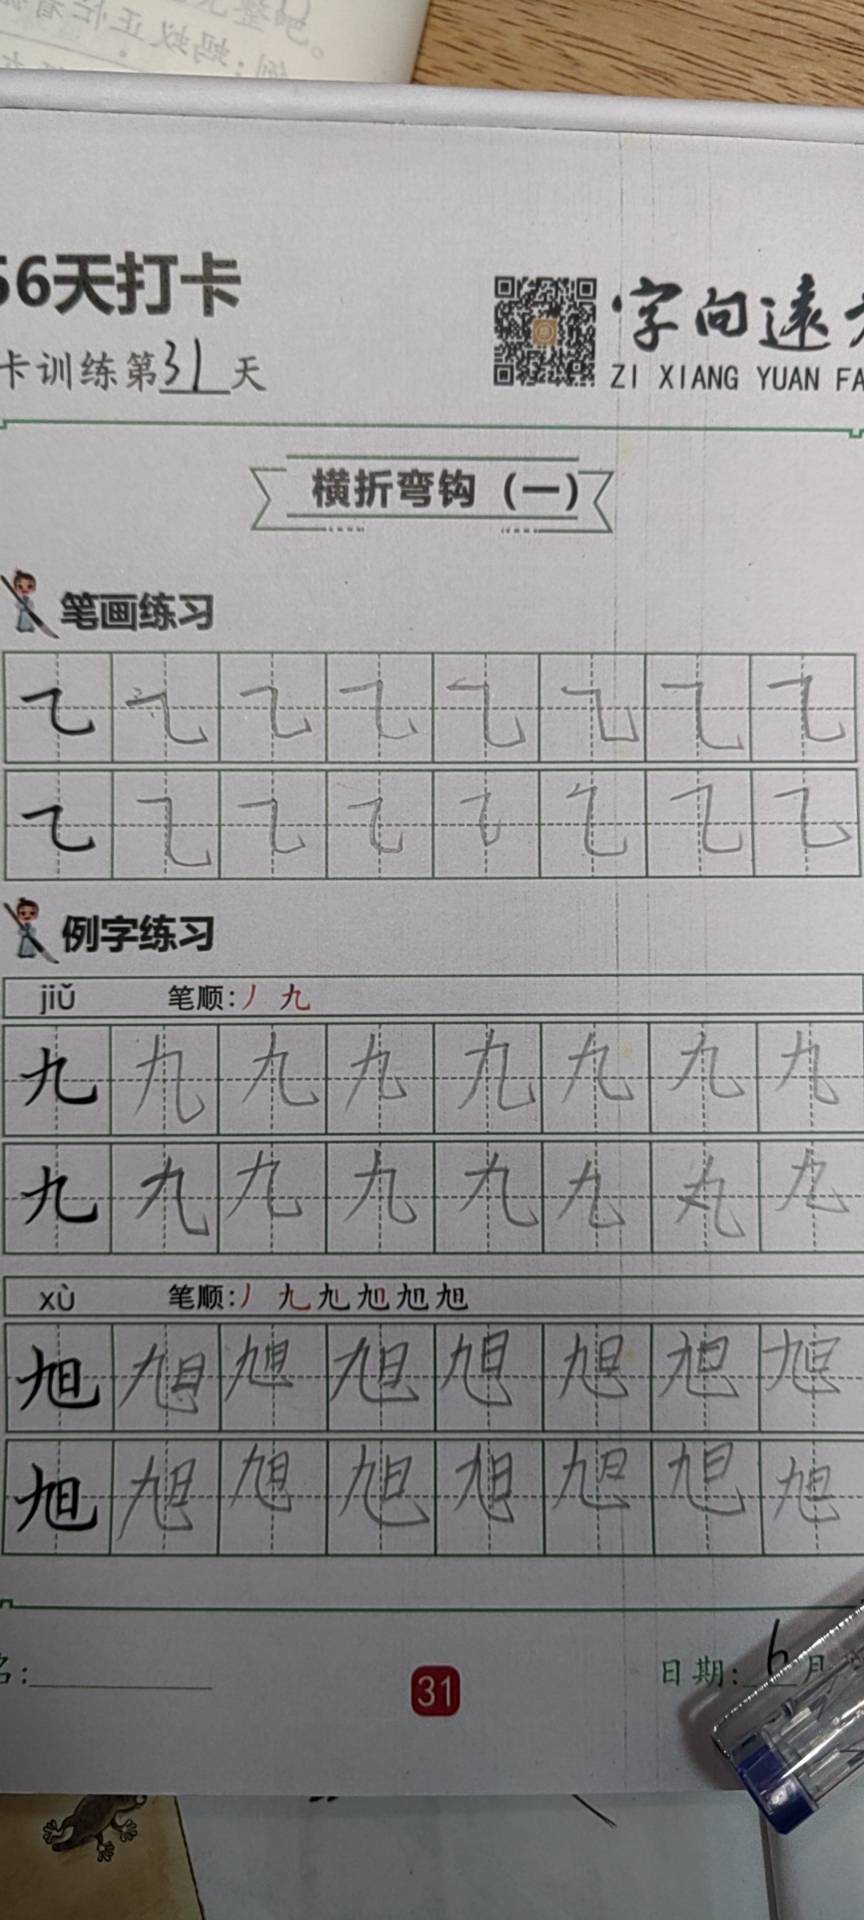 56天打卡
卡训练第31天
字向遠
ZI XIANG YUAN FA
横折弯钩（一）
笔画练习
例字练习
jiǔ 笔顺：丿 九
九 九 九 九 九 九 九 九
九 九 九 九 九 九 丸 九
xù 笔顺：丿 九 九 旭 旭 旭
旭 旭 旭 旭 旭 旭 旭 旭
旭 旭 旭 旭 旭 旭 旭 旭
名：
31
日期：6月